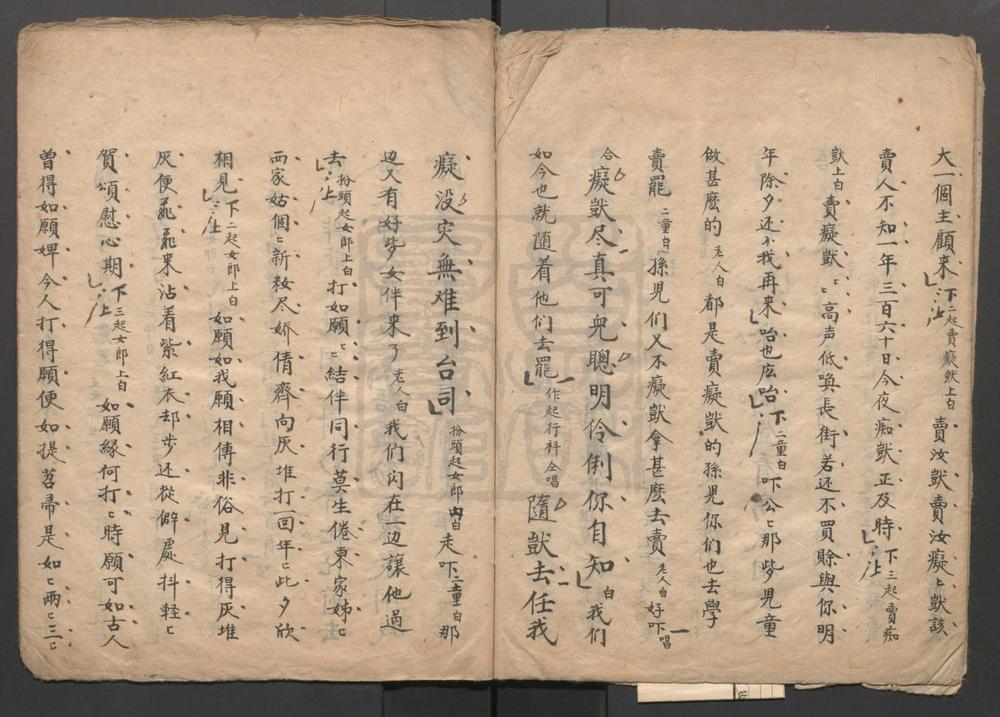 大一個主顧来下二起賣癡獃上白賣汝獃賣汝癡ヒ獃該
賣人不知一年三百六十日今夜痴獃正及時下三起賣痴
獃上白賣癡獃ヒ高声低喚長街若还不買賒與你明
年除夕还尒我再来哈也庅哈下二童白吓公ヒ那些児童
做甚麽的老人白都是賣癡獃的孫児你们也去學
賣罷二童白孫児们又不癡獃拿甚麽去賣老人白好吓唱
合癡獃尽真可兌聰明伶俐你自知白我们
如今也就随着他们去罷作起行科仝唱隨獃去任我
癡没灾無难到台司扮頭起女郎内白走吓二童白那
边又有好些女伴来了老人白我们闪在一边讓他過
去扮頭起女郎上白打如願ヒ結伴同行莫生倦東家姊ヒ
西家姑個ヒ新粧尽娇倩齊向灰堆打一回年ヒ此夕欣
相見下二起女郎上白如願如我願相傳非俗見打得灰堆
灰便飛飛来沾着紫紅衣却步还從僻處抖輕ヒ
賀頌慰心期下三起女郎上白如願緣何打ヒ時願可如古人
曾得如願婢今人打得願便如提苕帚是如ヒ兩ヒ三ヒ